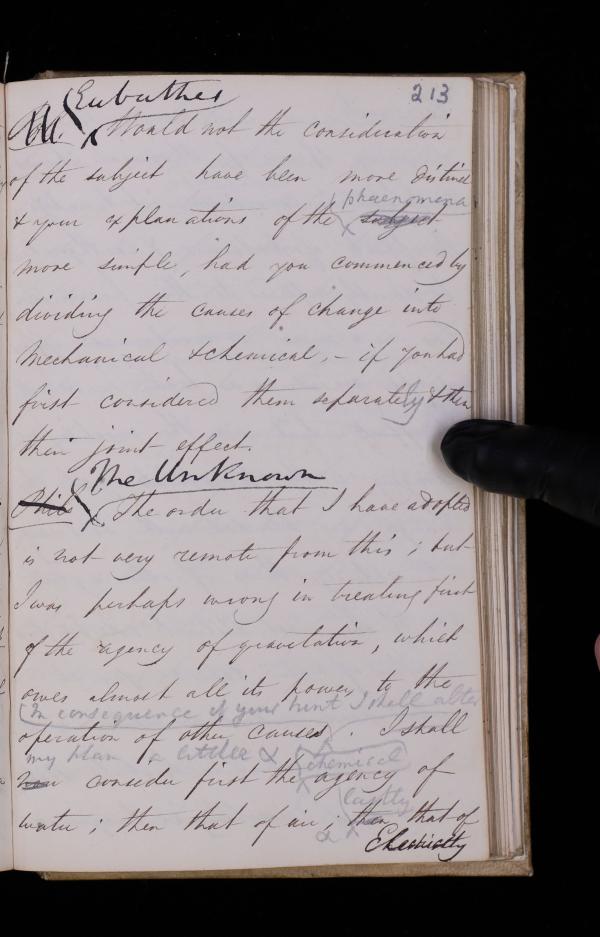 Eubathes 213
Would not the consideration
of the subject have been more distinct
phaenomena
& your explanations of the subject
more simple, had you commenced by
dividing the causes of change into
Mechanical & chemical, – if you had
first considered them separately & then
their joint effect.
The Unknown
Phil The order that I have adopted
is not very remote from this; but
I was perhaps wrong in treating first
of the agency of gravitation, which
owes almost all its power to the
In consequence of your hint I shall alter
operation of other causes. I shall
my plan a little & chemical
now consider first the agency of
lastly
water; then that of air; & then that of
Electricity